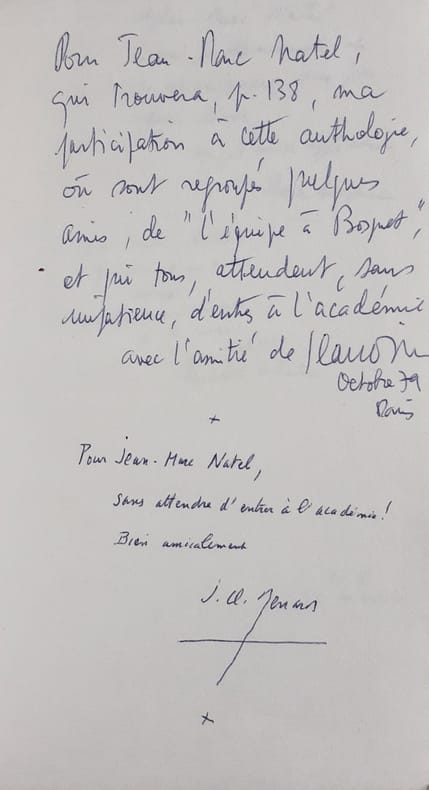 Pour Jean-Marc Natel,
qui trouvera, p. 138, ma
participation à cette anthologie,
où sont regroupés quelques
amis, de "l'équipe à Bosquet",
et qui tous, attendent, sans
impatience, d'entrer à l'académie
avec l'amitié de
Octobre 79
Paris
+
Pour Jean-Marc Natel,
sans attendre d'entrer à l'académie!
Bien amicalement
J. Cl. Renard
+